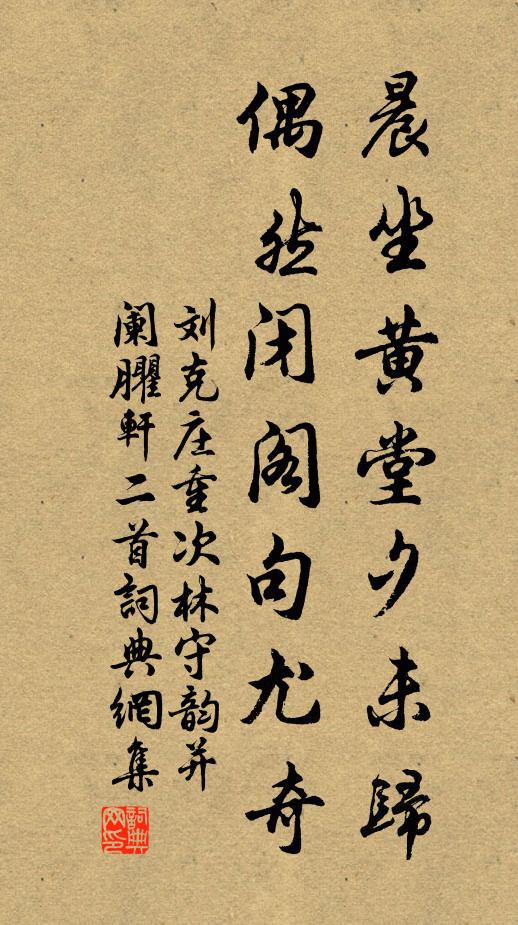 晨坐黄堂夕未歸
偶然闭阁句尤奇
刘克庄重次林守韵并
阑臞軒二首詞典網集
詞典网印